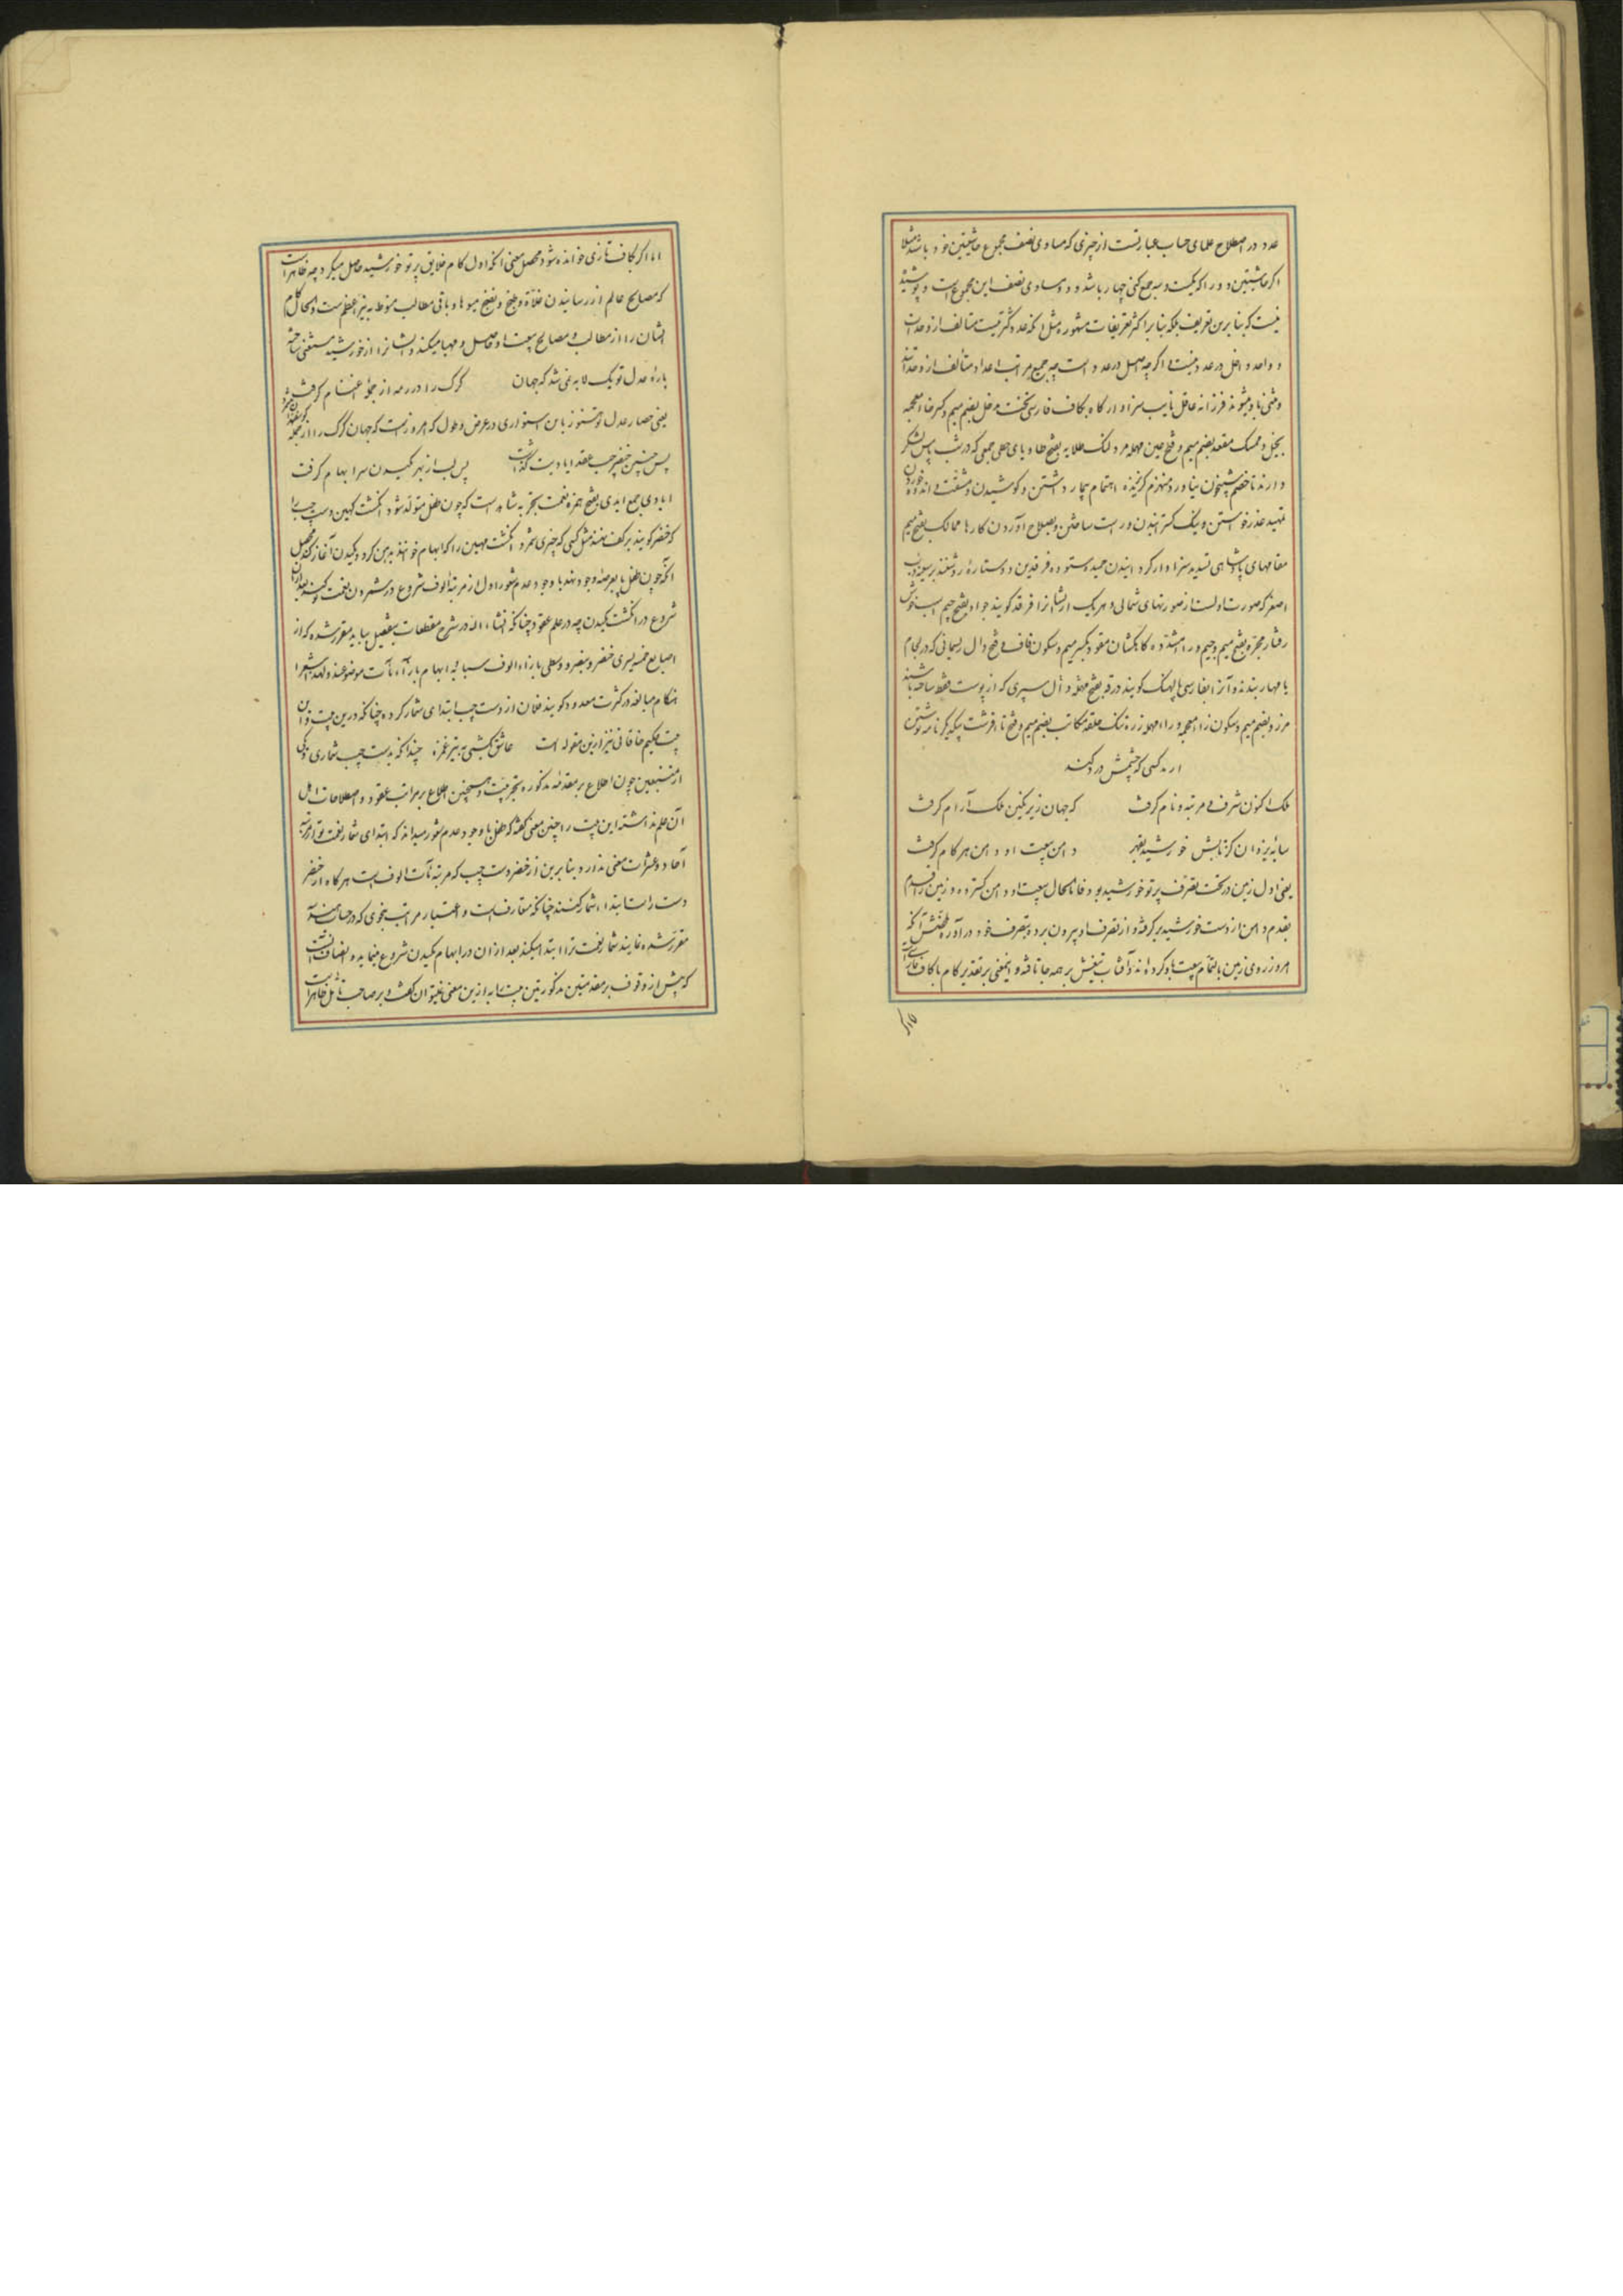 عدد در اصطلاح علمای حساب عبارتست از چیزی که مساوی نصف مجموع حاشیتین خود باشد مثلا
اگر حاشیتین دو را که یکست و سه جمع کنی چهار باشد و دو مساوی نصف این مجموع است و پوشیده
نیست که بنا برین تعریف بلکه بنا بر اکثر تعریفات مشهوره مثل انکه عدد کثرتیست متالف از وحدات
و واحد داخل در عدد نیست و اگر چه اصل در عدد است چه جمیع مراتب اعداد متألف از وحداتند
و مثنی نا و میشوند فرزانه عاقل نایب سزاوار کاه بکاف فارسی تخت مدخل بضم میم و کسر خا معجمه
بخیل و ممسک مقعد بضم میم و فتح عین مهمله مرد لنک طلایه بفتح طا و یای حطی جمعی که در شب پاس لشکر
دارند تا خصم شبیخون نیاورد منهزم کریزنده اهتمام تیمار داشتن و کوشیدن و مشقت و اندوه خوردن
تمهید عذر خواستن و نیک کسترانیدن و راست ساختن و بصلاح آوردن کارها ممالک بفتح میم
مقامهای پادشاهی تسدید سزاوار کردانیدن حمید ستوده فرقدین دو ستاره روشنند بر سینه دب
اصغر که صورت اولست از صورتهای شمالی و هر یک از ایشان را فرقد کویند جواد بفتح جیم اسب خوش
رفتار مجره بفتح میم و جیم و را مشدده کاهکشان مقود بکسر میم و سکون قاف و فتح دال ریسمانی که در لجام
یا مهار بندند و آنرا بفارسی پالهنک کویند درقه بفتح دال سپری که از پوست فقط ساخته باشند
مرزد بضم میم و سکون زا معجمه و را مهمله زره تنک حلقه مکاتب بضم میم و فتح تا فرشت یکدیکر نامه نوشتن
ارمد کسی که چشمش درد کند
ملک اکنون شرف و مرتبه و نام کرفت که جهان زیر نکین ملک آرام کرفت
سایه یزدان کز تابش خورشید بقهر دامن بیعت او دامن هر کام کرفت
یعنی اول زمین در تحت تصرف پرتو خورشید بود فاما الحال بیعت او دامن کسترده و زمین را قدم
بقدم دامن از دست خورشید بر کرفته و از تصرف او بیرون برده و بتصرف خود در آورده ملخصش آنکه
امروز روی زمین بالتمام بیعت باو کرده اند و آفتاب تیغش بر همه جا تافته و اینمعنی بر تقدیر کام با کاف فارسی است
اما اگر
اما اکر بکاف تازی خوانده شود محصل معنی آنکه اول کام خلایق پرتو خورشید حاصل میکرد چه ظاهر است
که مصالح عالم از رسانیدن غلات و طبخ و نضج میوها و باقی مطالب منوط به نیر اعظمست و الحال کام
ایشان را از مطالب و مصالح بیعت او حاصل و مهیا میکند و ایشانرا از خورشید مستغنی ساخته
باره عدل تو یک لابه غی شد که جهان کرک را در رمه از جملۀ اغنام کرفت
یعنی حصار عدل تو هنوز باین استواری در عرض و طول که امروز است که جهان کرک را از جمله کوسفندان شمرد
پس چنین خنصر چپ عقد ایادیت کرفت پس لب از بهر مکیدن سر ابهام کرفت
ایادی جمع ایدی بفتح همزه نعمت بتجربه شاهد است که چون طفل متولد شود انکشت کهین دست چپ را
که خنصر کویند بر کف نهند مثل کسی که چیزی شمرد و انکشت مهین را که ابهام خوانند بدهن کرد و مکیدن آغاز کند محصل
آنکه چون طفل پا بعرصۀ وجود نهد با وجود عدم شعور اول از مرتبۀ الوف شروع در شمردن نعمت تو کند بعد از آن
شروع در انکشت مکیدن چه در علم عقود چنانکه انشاء الله در شرح مقطعات بتفصیل بیاید مقرر شده که از
اصابع خمسه یسری خنصر و بنصر و وسطی بازاء الوف سبابه و ابهام بازاء مآت موضوعند و لهذا شعرا
هنکام مبالغه در کثرت معدود کویند فلان از دست چپ ابتدای شمار کرده چنانکه درین بیت و آن
بیت حکیم خاقانی نیز ازین مقوله است عاشق بکشی به تیر غمزه چندانکه بدست چپ شماری و یکی
از متتبعین چون اطلاع بر مقدمه مذکوره بتجربیت و همچنین اطلاع بر مراتب عقود و اصطلاحات اهل
آن علم نداشته این بیت را چنین معنی کفته که طفل با وجود عدم شعور میداند که ابتدای شمار نعمت تو از مرتبه
آحاد و عشرات معنی ندارد بنا برین از خنصر دست چپ که مرتبه مآت الوفست هر کاه از خنصر
دست راست ابتداء شمار کنند چنانکه متعارفست و اعتبار مراتب بنحوی که در حساب هند
مقرر شده نمایند شمار نعمت ترا ابتدا میکند بعد از ان در ابهام مکیدن شروع مینماید و انصاف آنست
که پیش از وقوف بر مقدمتین مذکورتین بیت را به ازین معنی نمیتوان کفت و بر صاحب تأمل ظاهر است